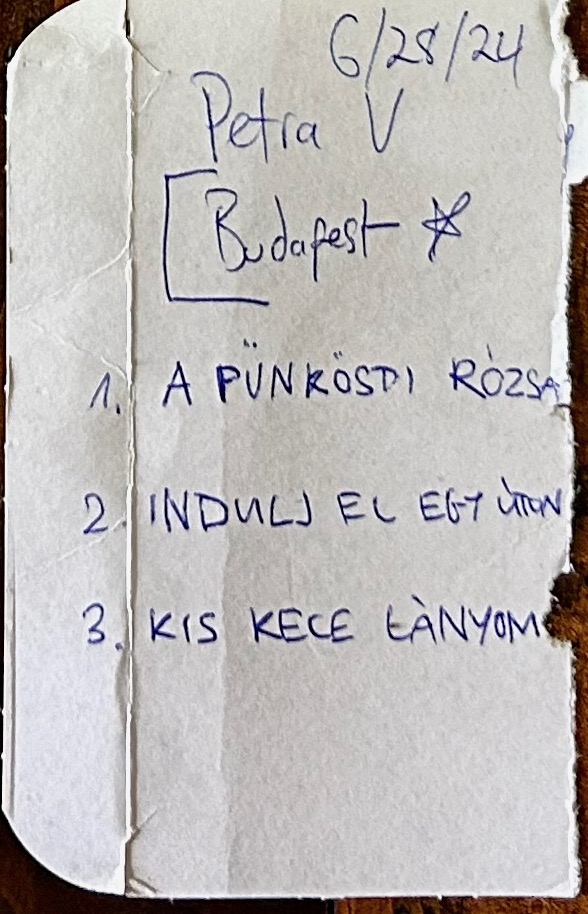 6/28/24
Petra V
Budapest
1. A PÜNKÖSDI RÓZSA
2. INDULJ EL EGY ÚTON
3. KIS KECE LÀNYOM